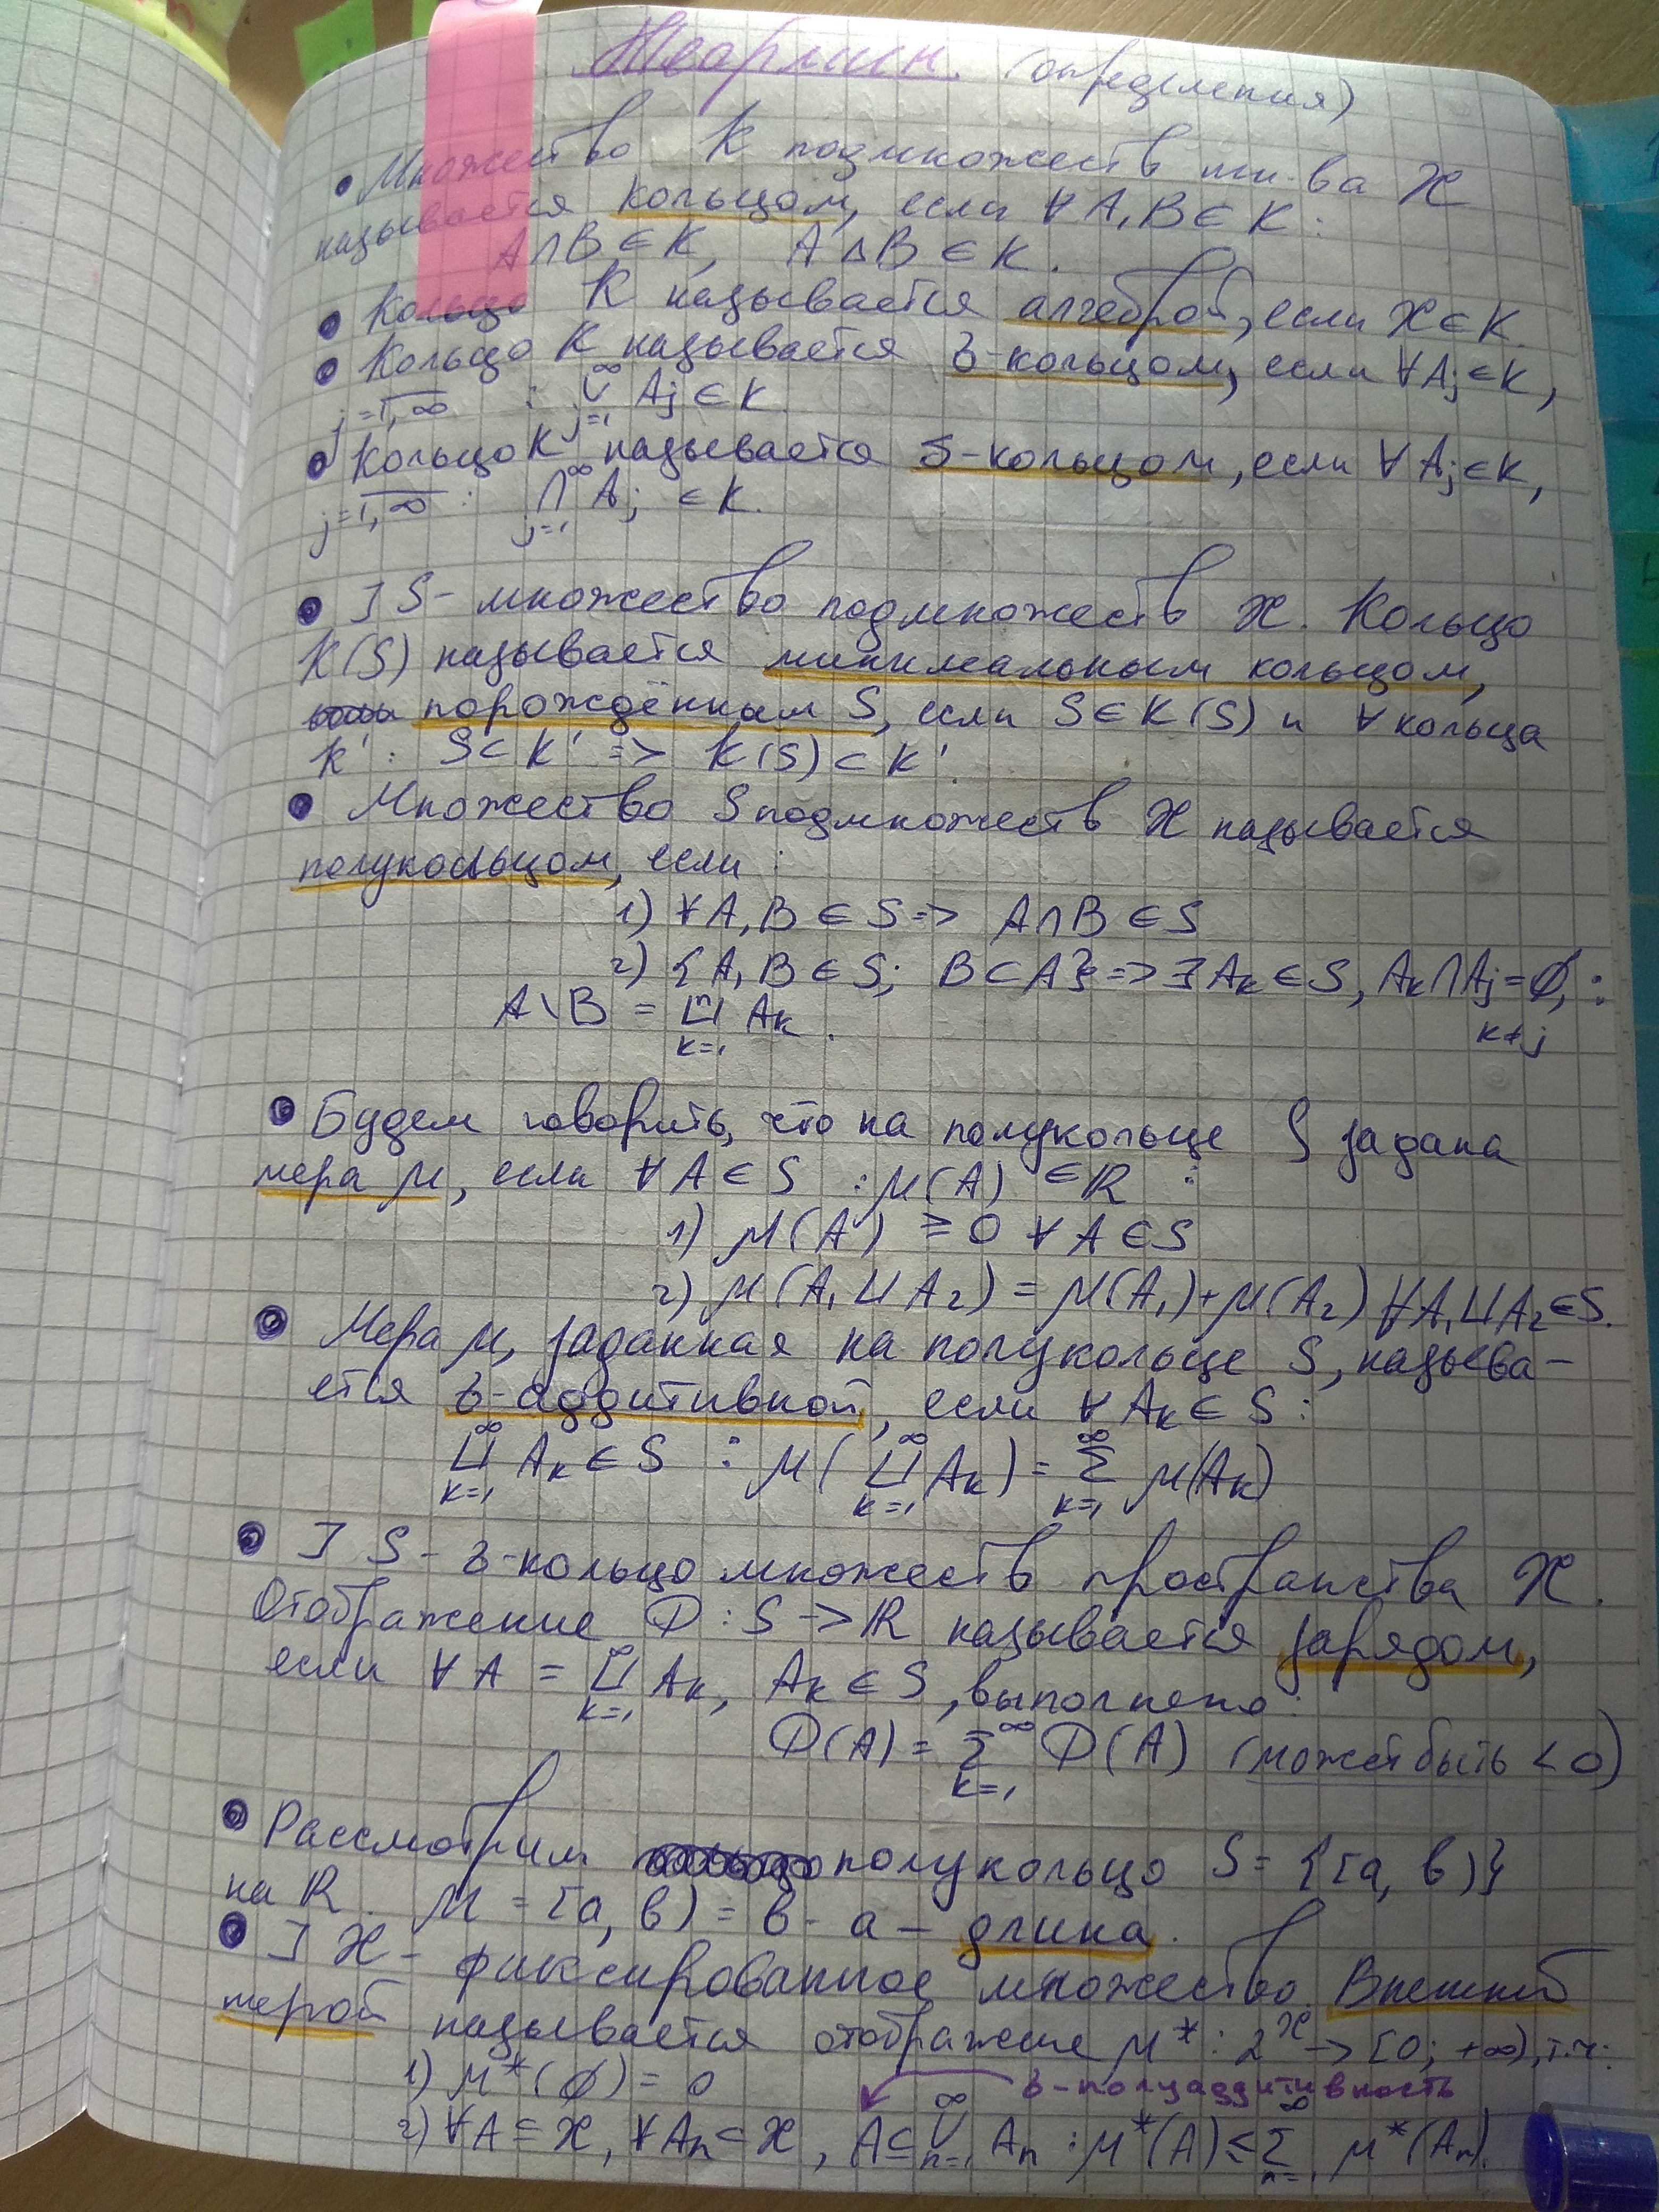 Теормин. (определения)
• Множество K подмножеств мн-ва X
называется кольцом, если ∀ A, B ∈ K :
A∩B ∈ K, A △ B ∈ K.
• Кольцо K называется алгеброй, если X ∈ K.
• Кольцо K называется σ-кольцом, если ∀ Aj ∈ K,
j=1,∞ : ∞ ∪ j=1 Aj ∈ K.
• Кольцо K называется δ-кольцом, если ∀ Aj ∈ K,
j=1,∞ : ∞ ∩ j=1 Aj ∈ K.
• ] S - множество подмножеств X. Кольцо
K(S) называется минимальным кольцом,
порождённым S, если S ∈ K(S) и ∀ кольца
K' : S ⊂ K' => K(S) ⊂ K'.
• Множество S подмножеств X называется
полукольцом, если :
1) ∀ A, B ∈ S => A∩B ∈ S
2) {A, B ∈ S; B ⊂ A} => ∃ Ak ∈ S, Ak ∩ Aj = ∅, :
k≠j
A\B = n ⊔ k=1 Ak.
• Будем говорить, что на полукольце S задана
мера μ, если ∀ A ∈ S : μ(A) ∈ ℝ :
1) μ(A) ≥ 0 ∀ A ∈ S
2) μ(A1 ⊔ A2) = μ(A1) + μ(A2) ∀ A1 ⊔ A2 ∈ S.
• Мера μ, заданная на полукольце S, называ-
ется σ-аддитивной, если ∀ Ak ∈ S :
∞ ⊔ k=1 Ak ∈ S : μ( ∞ ⊔ k=1 Ak) = ∞ Σ k=1 μ(Ak)
• ] S - σ-кольцо множеств пространства X.
Отображение Φ : S -> ℝ называется зарядом,
если ∀ A = ∞ ⊔ k=1 Ak, Ak ∈ S, выполнено :
Φ(A) = ∞ Σ k=1 Φ(A) (может быть < 0)
• Рассмотрим полукольцо S = {[a, b)}
на ℝ. μ = [a, b) = b - a - длина.
• ] X - фиксированное множество. Внешней
мерой называется отображение μ* : 2^X -> [0; +∞), т.ч.:
1) μ*(∅) = 0
σ-полуаддитивность
2) ∀ A ⊆ X, ∀ An ⊂ X, A ⊆ ∞ ∪ n=1 An : μ*(A) ≤ ∞ Σ n=1 μ*(An).